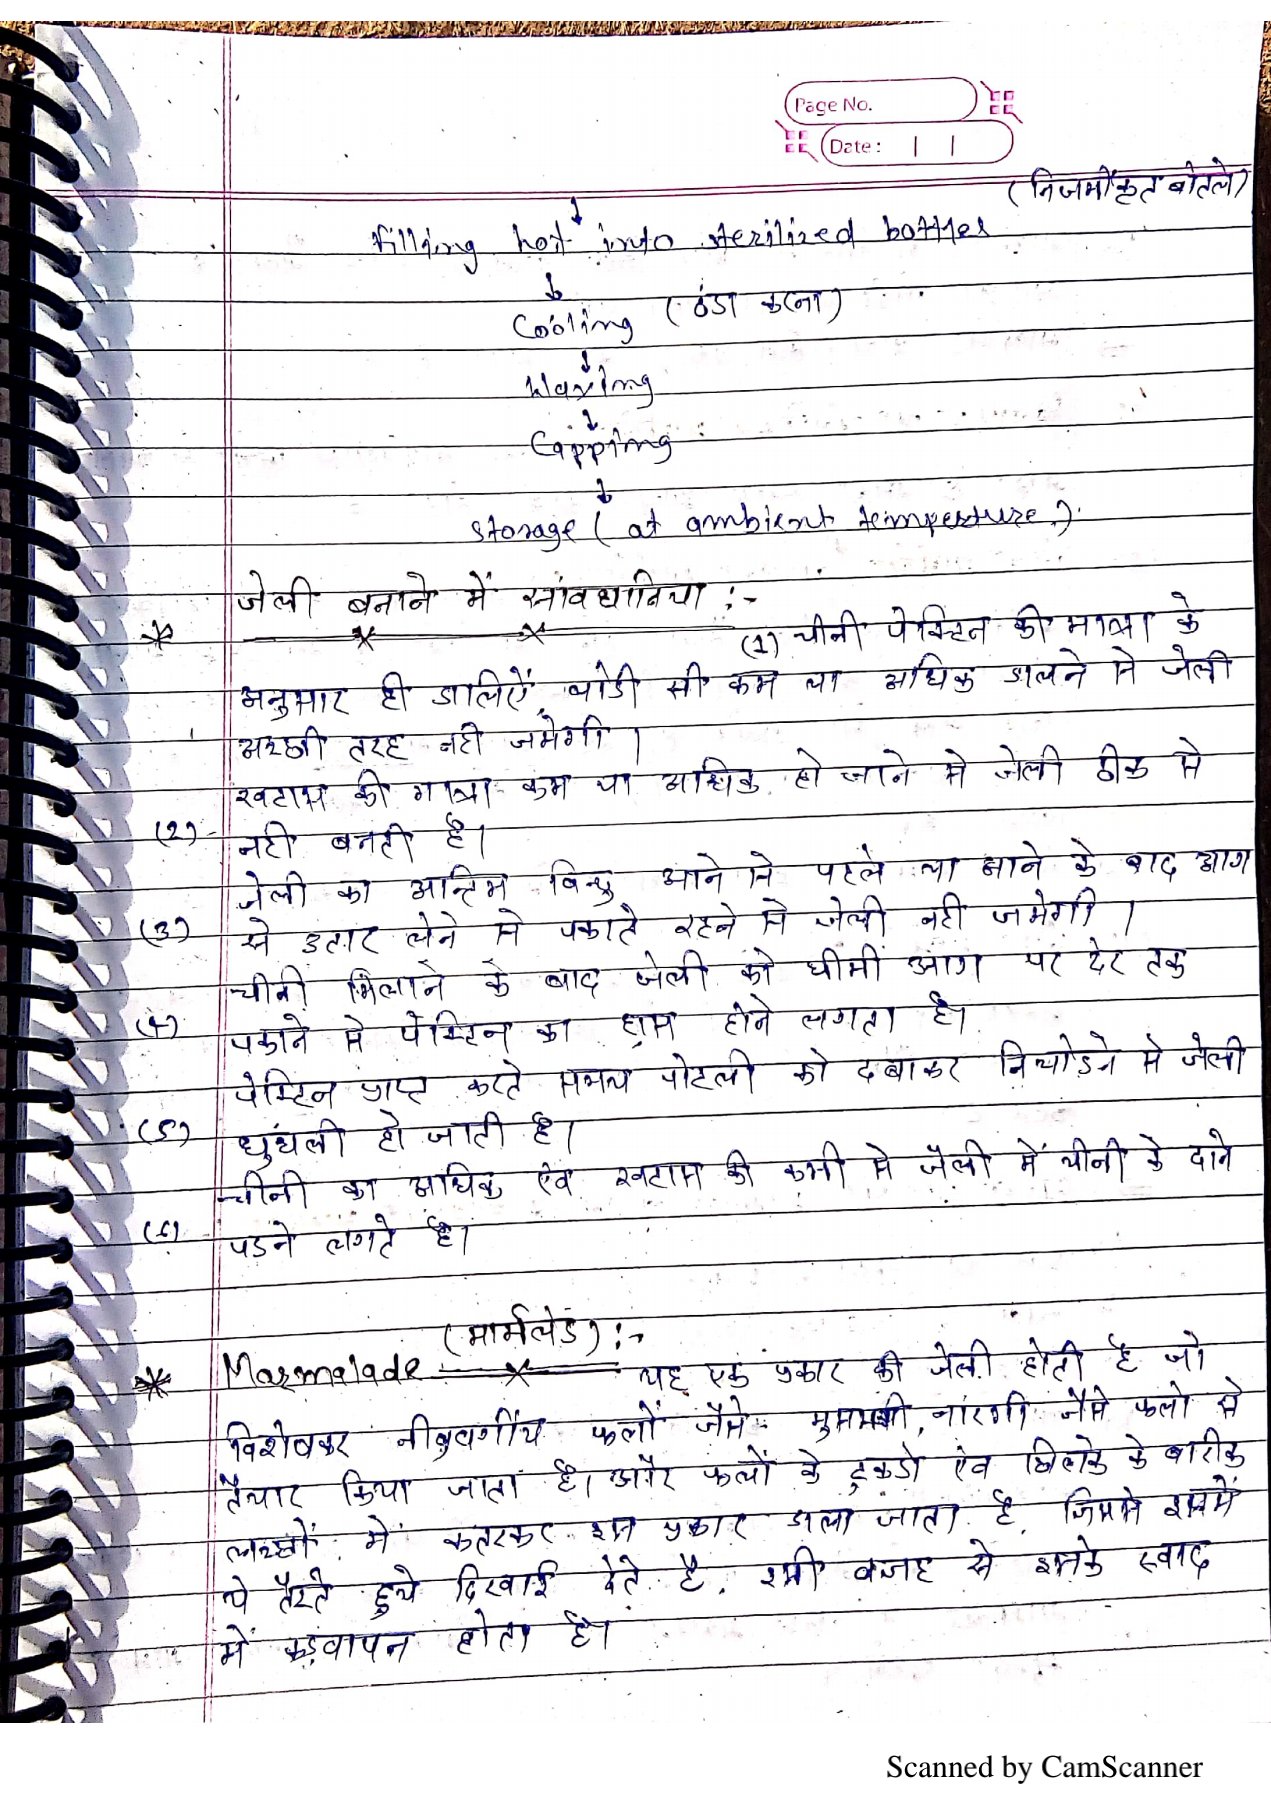 Page No.
Date :
(निजर्मीकृत बोतले)
↓
filling hot into sterilized bottles
↓
Cooling (ठंडा करना)
↓
Waxing
↓
Capping
↓
storage (at ambient temperature)
* जेली बनाने में सांवधानिया :-
(1) चीनी पेक्टिन की मात्रा के
अनुसार ही डालिऐं, थोडी सी कम या अधिक डालने से जेली
अच्छी तरह नही जमेगी ।
खटास की मात्रा कम या अधिक हो जाने से जेली ठीक से
(2) नही बनती है।
जेली का अन्तिम बिन्दु आने से पहले या आने के बाद आग
(3) से उतार लेने से पकाते रहने से जेली नही जमेगी ।
चीनी मिलाने के बाद जेली को धीमी आंग पर देर तक
(4) पकाने से पेक्टिन का ह्रास होने लगता है।
पेक्टिन प्राप्त करते समय पोटली को दबाकर निचोडने से जेली
(5) धुंधली हो जाती है।
चीनी का अधिक एंव खटास की कमी से जैली में चीनी के दाने
(6) पडने लगते है।
* Marmalade (मार्मलेड) :- यह एक प्रकार की जेली होती है जो
विशेषकर नीबुवर्गीय फलों जैसे- मुसम्मी, नांरगी जैसे फलो से
तैयार किया जाता है। और फलों के टुकडो एंव छिलके के बारीक
लच्छों में कतरकर इस प्रकार डाला जाता है, जिससे इसमें
ये तैरते हुये दिखाई देते है, इसी वजह से इसके स्वाद
में कडवापन होता है।
Scanned by CamScanner